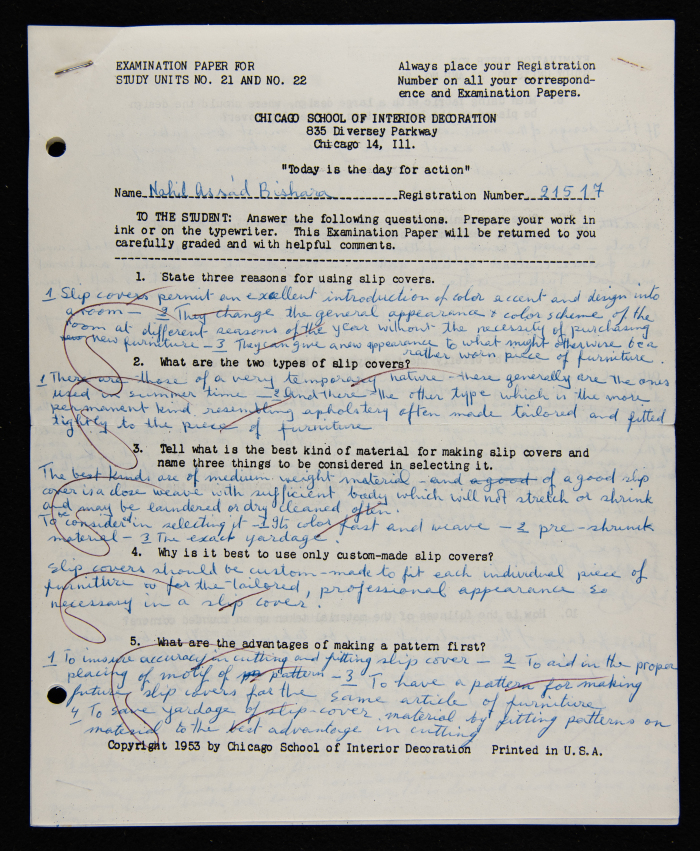 EXAMINATION PAPER FOR
STUDY UNITS NO. 21 AND NO. 22
Always place your Registration
Number on all your correspond-
ence and Examination Papers.
CHICAGO SCHOOL OF INTERIOR DECORATION
835 Diversey Parkway
Chicago 14, Ill.
"Today is the day for action"
Name Nahil Assád Bishara Registration Number 21517
TO THE STUDENT: Answer the following questions. Prepare your work in
ink or on the typewriter. This Examination Paper will be returned to you
carefully graded and with helpful comments.
1. State three reasons for using slip covers.
1 Slip covers permit an excellent introduction of color accent and design into
a room — 2 They change the general appearance & color scheme of the
room at different seasons of the year without the necessity of purchasing
new furniture - 3 They can give a new appearance to what might otherwise be a
rather worn piece of furniture.
2. What are the two types of slip covers?
1 There are those of a very temporary nature - these generally are the ones
used in summer time - 2 and there the other type which is the more
permanent kind resembling upholstery often made tailored and fitted
tightly to the piece of furniture
3. Tell what is the best kind of material for making slip covers and
name three things to be considered in selecting it.
The best kinds are of medium weight material - and a good of a good slip
cover is a close weave with sufficient body which will not stretch or shrink
and may be laundered or dry cleaned often.
To consider in selecting it - 1 Its color fast and weave - 2 pre-shrunk
material - 3 The exact yardage.
4. Why is it best to use only custom-made slip covers?
Slip covers should be custom-made to fit each individual piece of
furniture or for the tailored, professional appearance so
necessary in a slip cover.
5. What are the advantages of making a pattern first?
1 To insure accuracy in cutting and fitting slip cover — 2 To aid in the proper
placing of motif of pattern - 3 To have a pattern for making
future slip covers for the same article of furniture
4 To save yardage of slip-cover material by fitting patterns on
material to the best advantage in cutting
Copyright 1953 by Chicago School of Interior Decoration Printed in U.S.A.